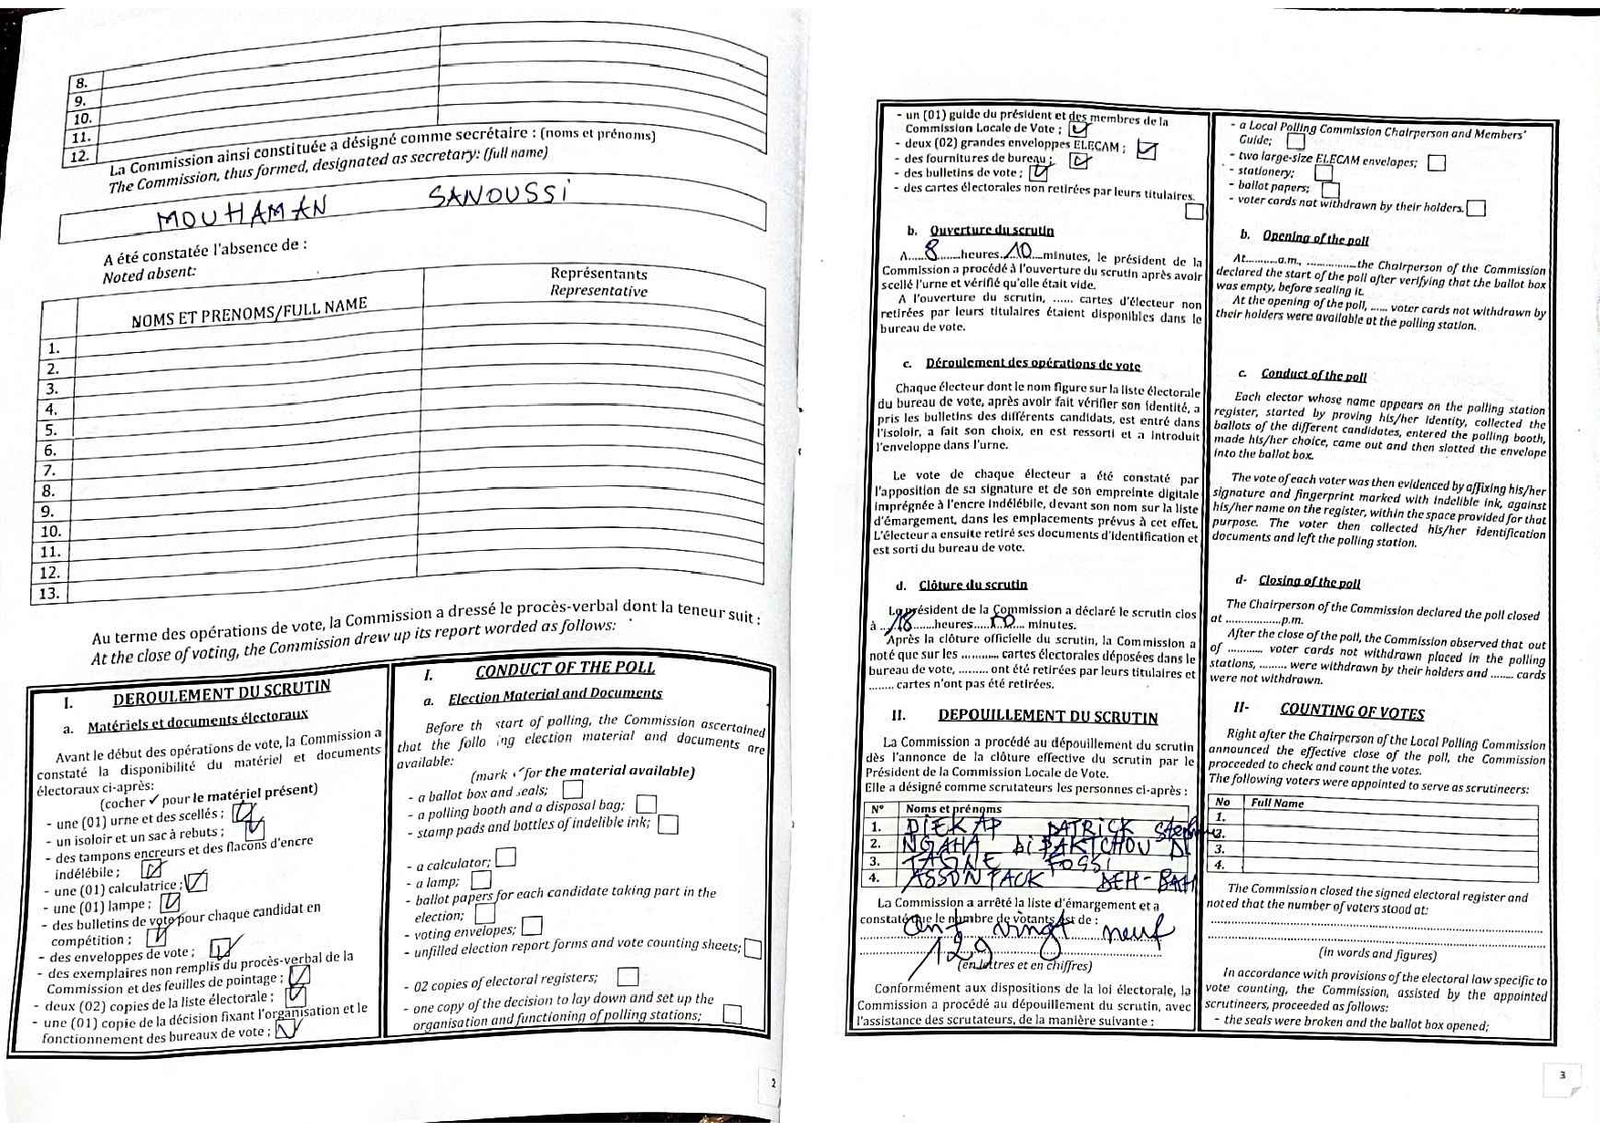 8.
9.
10.
11.
12.
La Commission ainsi constituée a désigné comme secrétaire : (noms et prénoms)
The Commission, thus formed, designated as secretary: (full name)
MOUHAMAN SANOUSSI
A été constatée l'absence de :
Noted absent:
NOMS ET PRENOMS/FULL NAME
Représentants
Representative
1.
2.
3.
4.
5.
6.
7.
8.
9.
10.
11.
12.
13.
Au terme des opérations de vote, la Commission a dressé le procès-verbal dont la teneur suit :
At the close of voting, the Commission drew up its report worded as follows:
I. DEROULEMENT DU SCRUTIN
a. Matériels et documents électoraux
Avant le début des opérations de vote, la Commission a
constaté la disponibilité du matériel et documents
électoraux ci-après:
(cocher ✓ pour le matériel présent)
- une (01) urne et des scellés ;
- un isoloir et un sac à rebuts ;
- des tampons encreurs et des flacons d'encre
indélébile ;
- une (01) calculatrice ;
- une (01) lampe ;
- des bulletins de vote pour chaque candidat en
compétition ;
- des enveloppes de vote ;
- des exemplaires non remplis du procès-verbal de la
Commission et des feuilles de pointage ;
- deux (02) copies de la liste électorale ;
- une (01) copie de la décision fixant l'organisation et le
fonctionnement des bureaux de vote ;
I. CONDUCT OF THE POLL
a. Election Material and Documents
Before th start of polling, the Commission ascertained
that the follo ing election material and documents are
available:
(mark ✓ for the material available)
- a ballot box and seals;
- a polling booth and a disposal bag;
- stamp pads and bottles of indelible ink;
- a calculator;
- a lamp;
- ballot papers for each candidate taking part in the
election;
- voting envelopes;
- unfilled election report forms and vote counting sheets;
- 02 copies of electoral registers;
- one copy of the decision to lay down and set up the
organisation and functioning of polling stations;
2
- un (01) guide du président et des membres de la
Commission Locale de Vote ;
- deux (02) grandes enveloppes ELECAM ;
- des fournitures de bureau ;
- des bulletins de vote ;
- des cartes électorales non retirées par leurs titulaires.
b. Ouverture du scrutin
A.....8.......heures..10...minutes, le président de la
Commission a procédé à l'ouverture du scrutin après avoir
scellé l'urne et vérifié qu'elle était vide.
A l'ouverture du scrutin, ...... cartes d'électeur non
retirées par leurs titulaires étaient disponibles dans le
bureau de vote.
c. Déroulement des opérations de vote
Chaque électeur dont le nom figure sur la liste électorale
du bureau de vote, après avoir fait vérifier son identité, a
pris les bulletins des différents candidats, est entré dans
l'isoloir, a fait son choix, en est ressorti et a introduit
l'enveloppe dans l'urne.
Le vote de chaque électeur a été constaté par
l'apposition de sa signature et de son empreinte digitale
imprégnée à l'encre indélébile, devant son nom sur la liste
d'émargement, dans les emplacements prévus à cet effet.
L'électeur a ensuite retiré ses documents d'identification et
est sorti du bureau de vote.
d. Clôture du scrutin
Le président de la Commission a déclaré le scrutin clos
à ..18......heures....00.... minutes.
Après la clôture officielle du scrutin, la Commission a
noté que sur les ........... cartes électorales déposées dans le
bureau de vote, ......... ont été retirées par leurs titulaires et
........ cartes n'ont pas été retirées.
II. DEPOUILLEMENT DU SCRUTIN
La Commission a procédé au dépouillement du scrutin
dès l'annonce de la clôture effective du scrutin par le
Président de la Commission Locale de Vote.
Elle a désigné comme scrutateurs les personnes ci-après :
N° Noms et prénoms
1. DJEKAP PATRICK
2. NGAHA
3. TAGNE FOSSI
4. ASSONTACK
La Commission a arrêté la liste d'émargement et a
constaté que le nombre de votants est de :
Cent vingt neuf
129
(en lettres et en chiffres)
Conformément aux dispositions de la loi électorale, la
Commission a procédé au dépouillement du scrutin, avec
l'assistance des scrutateurs, de la manière suivante :
- a Local Polling Commission Chairperson and Members'
Guide;
- two large-size ELECAM envelopes;
- stationery;
- ballot papers;
- voter cards not withdrawn by their holders.
b. Opening of the poll
At...........a.m., ................the Chairperson of the Commission
declared the start of the poll after verifying that the ballot box
was empty, before sealing it.
At the opening of the poll, ...... voter cards not withdrawn by
their holders were available at the polling station.
c. Conduct of the poll
Each elector whose name appears on the polling station
register, started by proving his/her identity, collected the
ballots of the different candidates, entered the polling booth,
made his/her choice, came out and then slotted the envelope
into the ballot box.
The vote of each voter was then evidenced by affixing his/her
signature and fingerprint marked with indelible ink, against
his/her name on the register, within the space provided for that
purpose. The voter then collected his/her identification
documents and left the polling station.
d- Closing of the poll
The Chairperson of the Commission declared the poll closed
at .................p.m.
After the close of the poll, the Commission observed that out
of ........... voter cards not withdrawn placed in the polling
stations, ......... were withdrawn by their holders and ........ cards
were not withdrawn.
II- COUNTING OF VOTES
Right after the Chairperson of the Local Polling Commission
announced the effective close of the poll, the Commission
proceeded to check and count the votes.
The following voters were appointed to serve as scrutineers:
No Full Name
1.
2.
3.
4.
The Commission closed the signed electoral register and
noted that the number of voters stood at:
(in words and figures)
In accordance with provisions of the electoral law specific to
vote counting, the Commission, assisted by the appointed
scrutineers, proceeded as follows:
- the seals were broken and the ballot box opened;
3